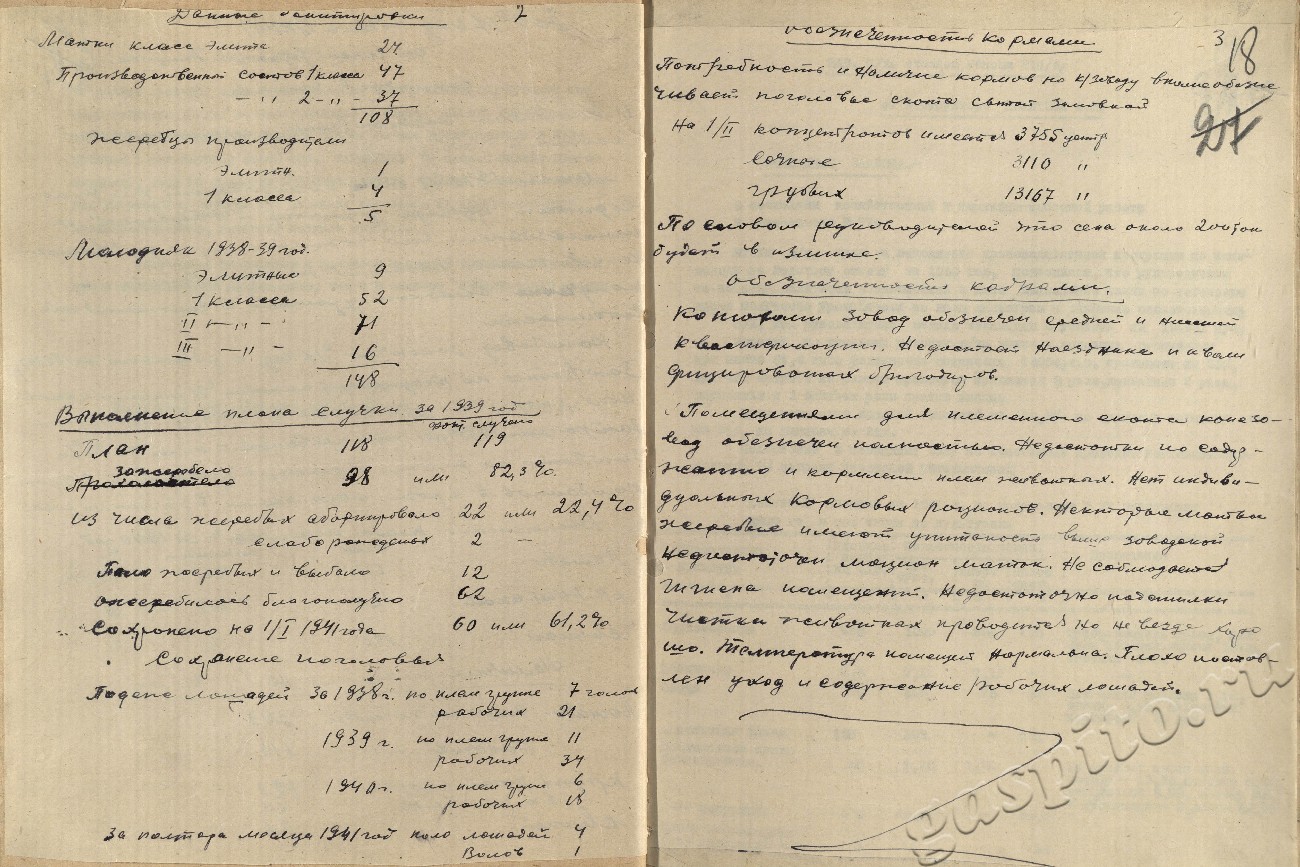 Данные бонитировки 2
Матки класс Элита 24
Производственной состов 1 класса 47
— " 2 — " — 37
108
Жеребцы производители
Элитн. 1
1 класса 4
5
Молодняк 1938-39 год.
Элитные 9
1 класса 52
II — " — 71
III — " — 16
148
Выполнение плана случки за 1939 год
случено
План 118 119
зажеребело
98 или 82,3%
из числа жеребых абортировало 22 или 22,4%
слаборожденых 2 —
Пало жеребых и выбыло 12
ожеребилось благополучно 62
Сохронено на 1/I 1941 года 60 или 61,2%
Сохронение поголовья
Подеж лошадей за 1938 г. по плем группе 7 голов
рабочих 21
1939 г. по плем группе 11
рабочих 34
1940 г. по плем групе 6
рабочих 18
За полтора месяца 1941 год пало лошадей 4
Волов 1
3 18
обезпеченность кормами
27
Потребность и Наличие кормов по к/зоводу вполне обезпе
чивает поголовье скота сытой зимовкой
На 1/II концентротов имеется 3755 центр
Сочные 3110 "
грубых 13167 "
По словам руководителей что сена около 200 тон
будет в излишке.
обезпеченность кадрами.
завод обезпечен средней и низшей
квалификации. Недостает Наездника и квали
фицированых бригодиров.
Помещениями для племенного скота конезо-
вод обезпечен полностью. Недостатки по содер-
жанию и кормлению плем животных. Нет индиви-
дуольных Кормовых рационов. Некоторые матки
жеребые имеют упитаность выше заводской
Недостаточен моцион маток. Не соблюдается
гигиена помещений. Недостаточно подстилки
Чистка животных проводится но не везде хоро
шо. Температура помещен нормальна. Плохо постов-
лен уход и содержание рабочих лошадей.
gaspito.ru